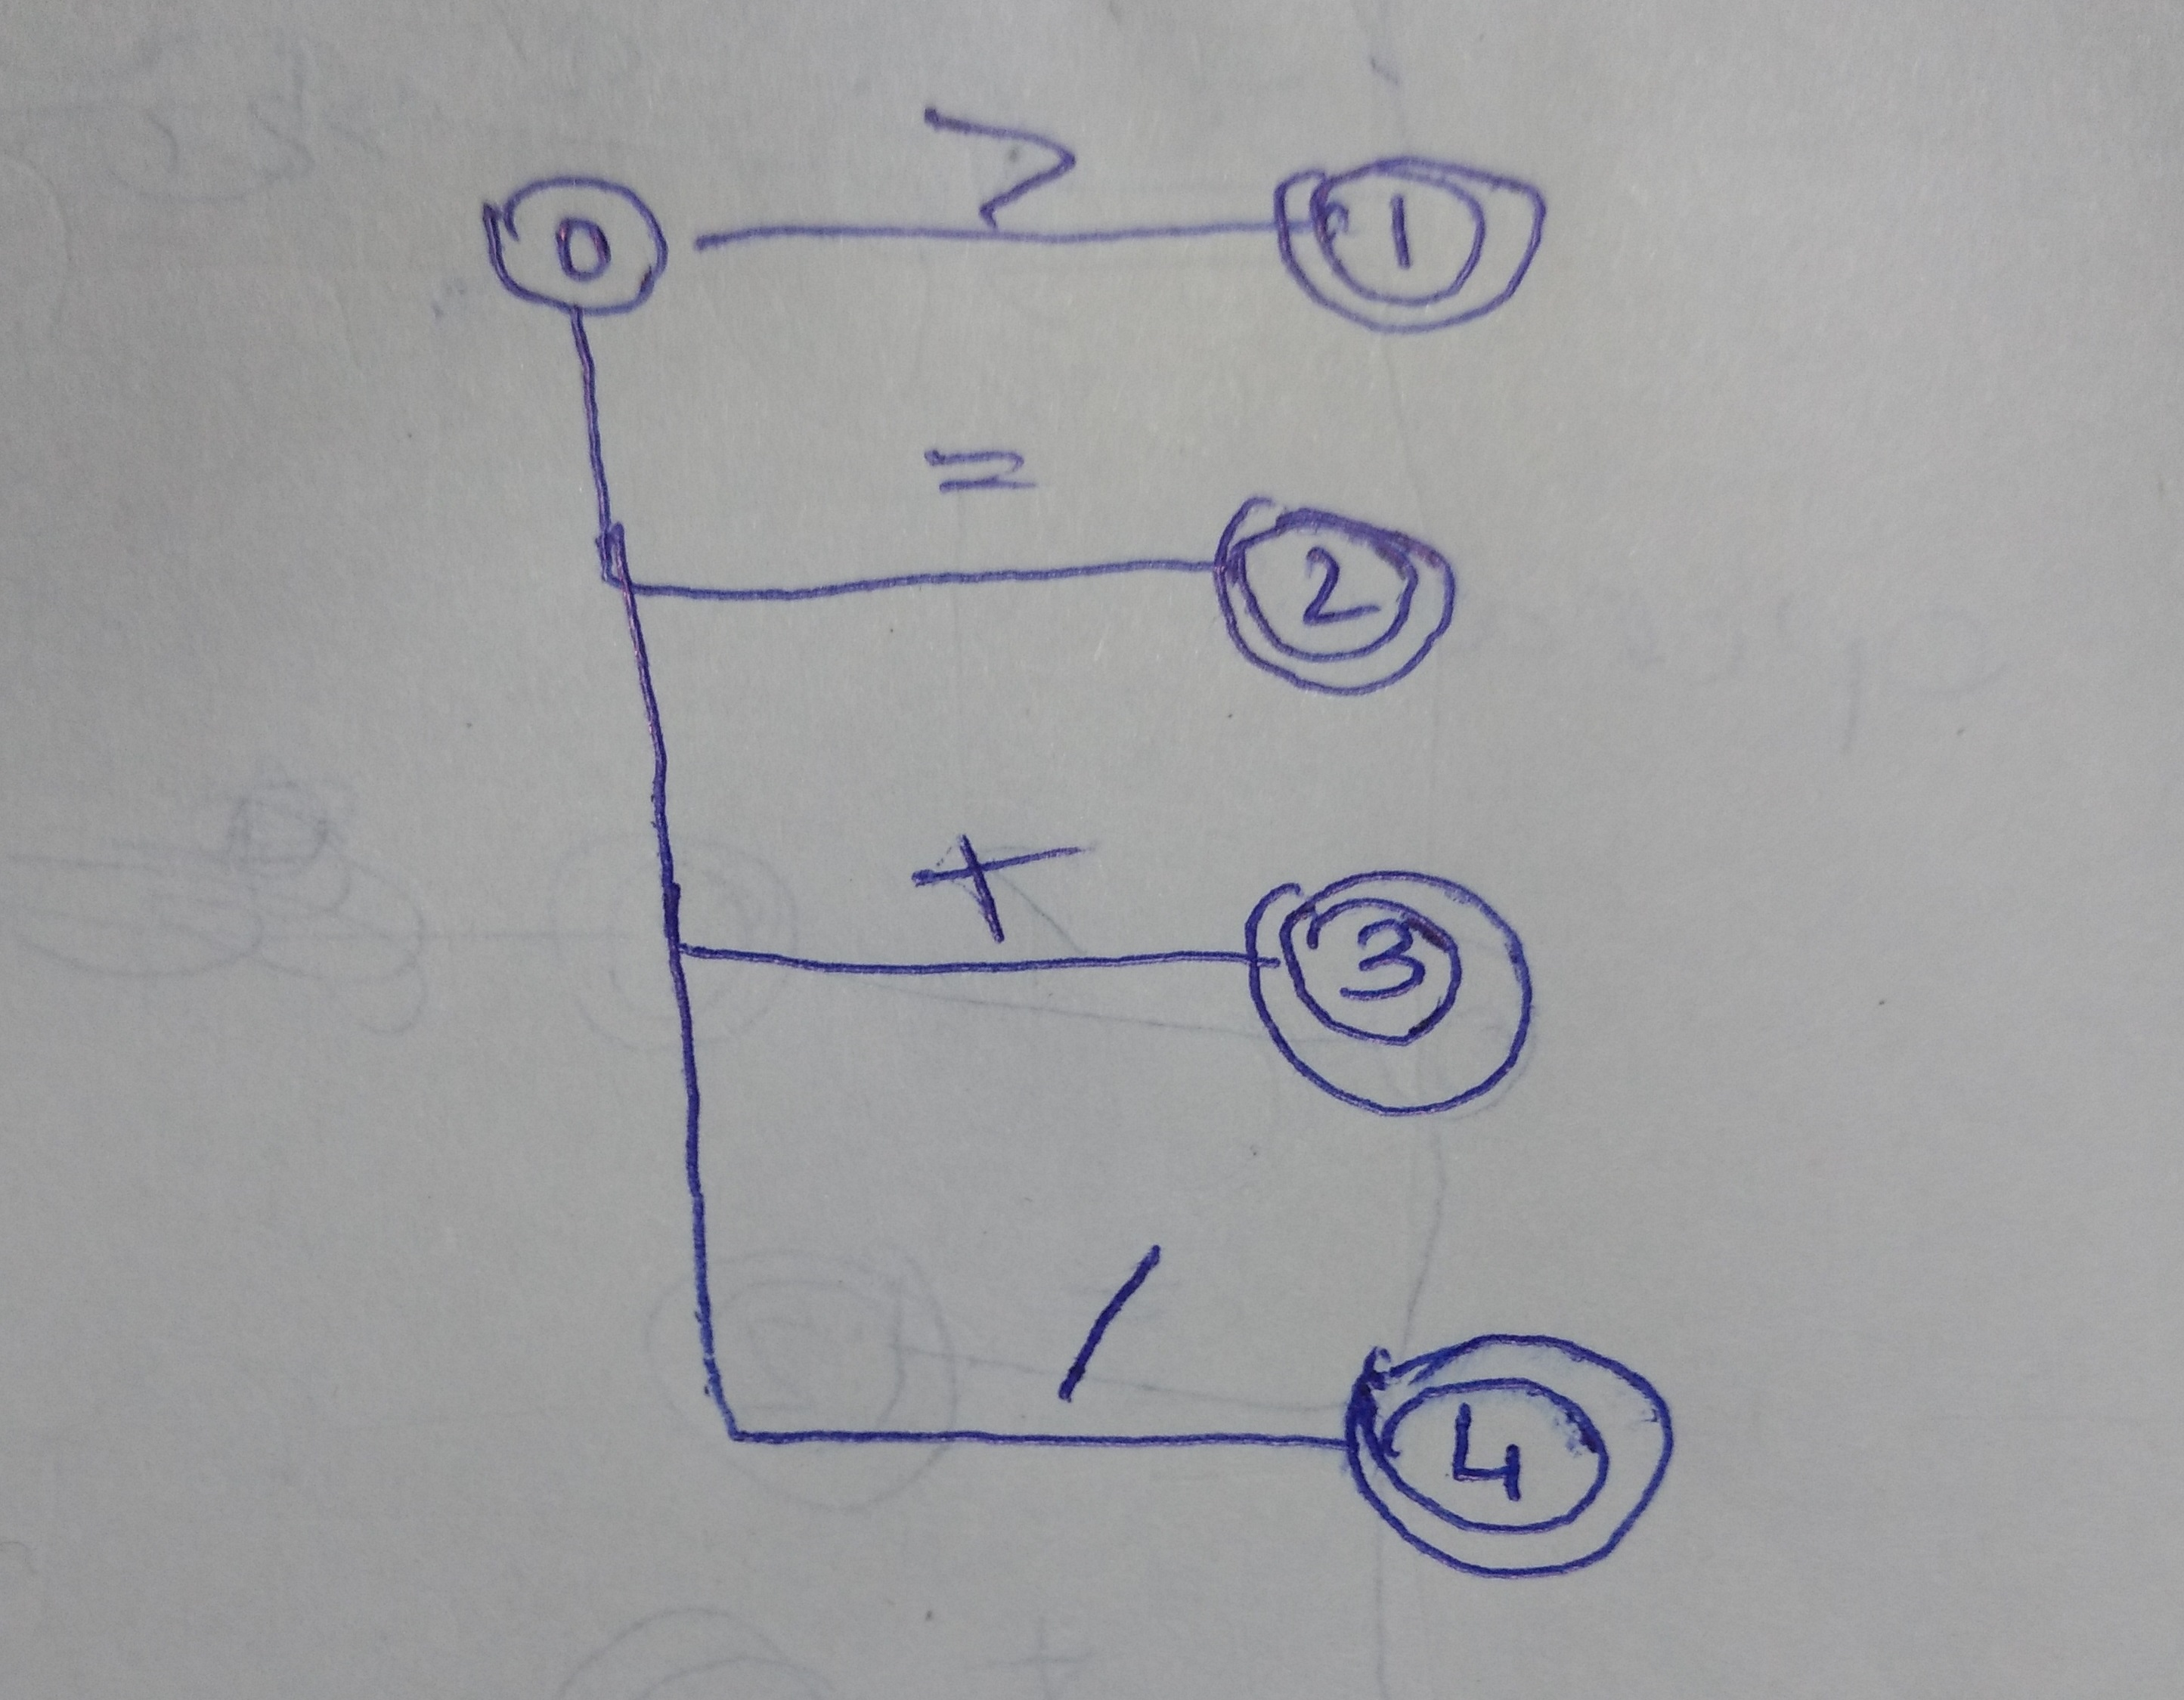 >
0 1
=
2
+
3
/
4